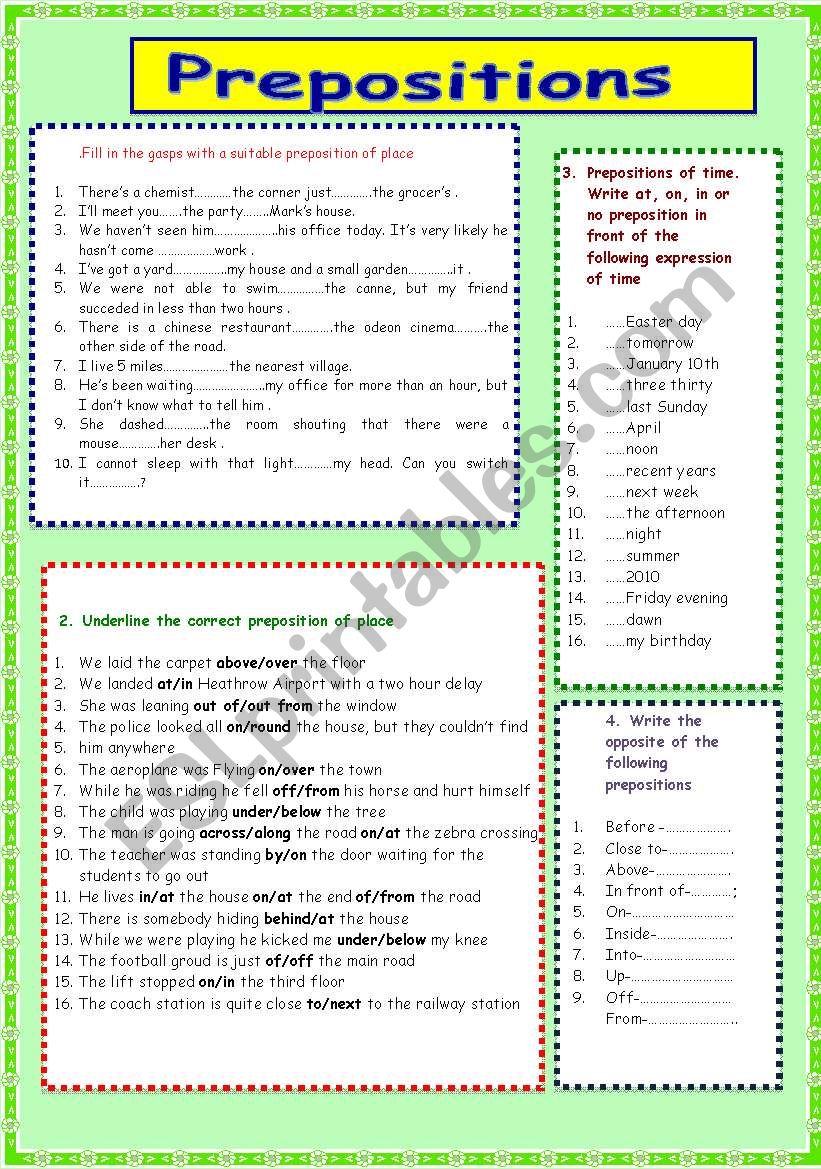 Prepositions
.Fill in the gasps with a suitable preposition of place
1. There's a chemist…………the corner just………….the grocer's .
2. I'll meet you…….the party……..Mark's house.
3. We haven't seen him………………..his office today. It's very likely he
hasn't come ………………work .
4. I've got a yard……………..my house and a small garden…………..it .
5. We were not able to swim……………the canne, but my friend
succeded in less than two hours .
6. There is a chinese restaurant………….the odeon cinema……….the
other side of the road.
7. I live 5 miles…………………the nearest village.
8. He's been waiting…………………..my office for more than an hour, but
I don't know what to tell him .
9. She dashed…………..the room shouting that there were a
mouse………….her desk .
10. I cannot sleep with that light…………my head. Can you switch
it……………?
2. Underline the correct preposition of place
1. We laid the carpet above/over the floor
2. We landed at/in Heathrow Airport with a two hour delay
3. She was leaning out of/out from the window
4. The police looked all on/round the house, but they couldn't find
5. him anywhere
6. The aeroplane was Flying on/over the town
7. While he was riding he fell off/from his horse and hurt himself
8. The child was playing under/below the tree
9. The man is going across/along the road on/at the zebra crossing
10. The teacher was standing by/on the door waiting for the
students to go out
11. He lives in/at the house on/at the end of/from the road
12. There is somebody hiding behind/at the house
13. While we were playing he kicked me under/below my knee
14. The football groud is just of/off the main road
15. The lift stopped on/in the third floor
16. The coach station is quite close to/next to the railway station
3. Prepositions of time.
Write at, on, in or
no preposition in
front of the
following expression
of time
1. ……Easter day
2. ……tomorrow
3. ……January 10th
4. ……three thirty
5. ……last Sunday
6. ……April
7. ……noon
8. ……recent years
9. ……next week
10. ……the afternoon
11. ……night
12. ……summer
13. ……2010
14. ……Friday evening
15. ……dawn
16. ……my birthday
4. Write the
opposite of the
following
prepositions
1. Before -……………….
2. Close to-……………….
3. Above-………………….
4. In front of-…………;
5. On-…………………………
6. Inside-………………….
7. Into-………………………
8. Up-…………………………
9. Off-………………………
From-……………………..
ESLprintables.com